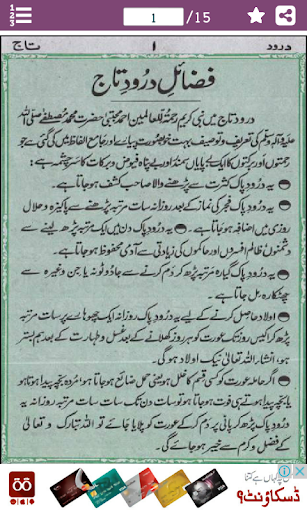 1 /15
درود
۱
تاج
فضائلِ درُودِ تاج
درود تاج میں نبی کریم رحمۃ للعالمین احمد مجتبیٰ حضرت محمد مصطفےٰ صلی اللہ
علیہ وآلہ وسلم کی تعریف و توصیف بہت خوبصورت پیارے اور جامع الفاظ میں کی گئی ہے جو
رحمتوں اور برکتوں کا ایک بے پایاں سمندر اور بے پناہ فیوض و برکات کا سرچشمہ ہے۔
یہ درُودِ پاک کثرت سے پڑھنے والا صاحبِ کشف ہو جاتا ہے۔
یہ درُودِ پاک فجر کی نماز کے بعد روزانہ سات مرتبہ پڑھنے سے پاکیزہ و حلال
روزی میں اضافہ ہو جاتا ہے۔ یہ درُودِ پاک دن میں ایک مرتبہ پڑھ لینے سے
دشمنوں ظالم افسروں اور حاکموں کی زیادتی سے آدمی محفوظ ہو جاتا ہے۔
یہ درُودِ پاک گیارہ مرتبہ پڑھ کر دم کرنے سے جادو ٹونہ یا جن وغیرہ سے
چھٹکارہ مل جاتا ہے۔
اولاد حاصل کرنے کے لیے یہ درُودِ پاک روزانہ ایک چھوہارے پر سات مرتبہ
پڑھ کر اکیس روز تک عورت کو ہر روز کھلانے کے بعد غسل و طہارت کے بعد ہم بستر
ہو، انشاء اللہ تعالیٰ نیک اولاد ہوگی۔
اگر حاملہ عورت کو کسی قسم کا خلل ہو یعنی حمل ضائع ہو جاتا ہو مُردہ بچہ پیدا ہوتا ہو یا
بچہ پیدا ہوتے ہی فوت ہو جاتا ہو تو سات دن تک سات سات مرتبہ روزانہ یہ
درُودِ پاک پانی پر دم کرکے عورت کو پلایا جائے تو اللہ تبارک و تعالیٰ
کے فضل و کرم سے خیر ہو جائے گی۔
ڈسکاؤنٹ؟